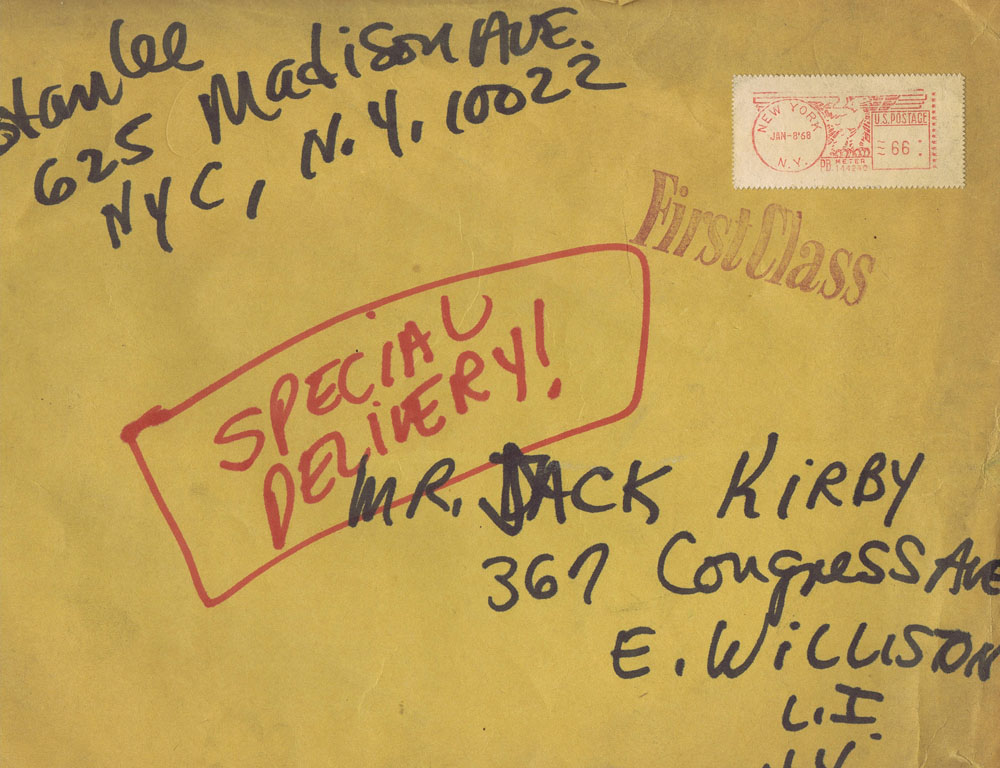 Stan Lee
625 Madison AVE.
NYC, N.Y. 10022
NEW YORK
JAN-8'68
N.Y.
U.S. POSTAGE
66
PB METER
First Class
SPECIAL
DELIVERY!
MR. JACK KIRBY
367 Congress AVE
E. WILLISTON
L.I.
N.Y.